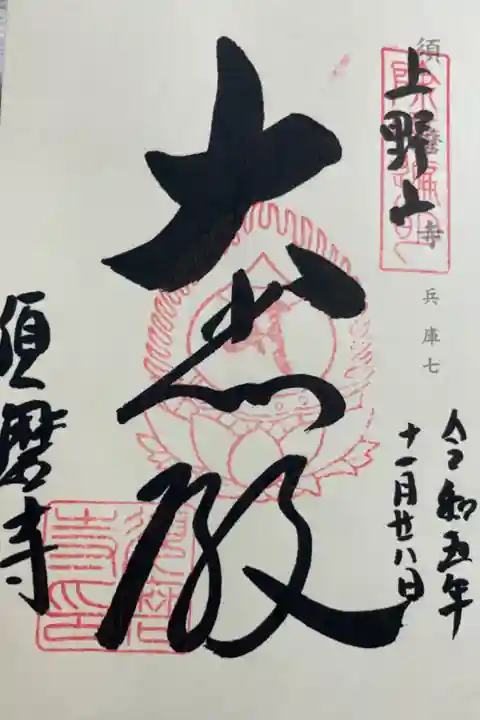 須磨寺 兵庫七
上野山
令和五年
十一月廿八日
大悲殿
須磨寺